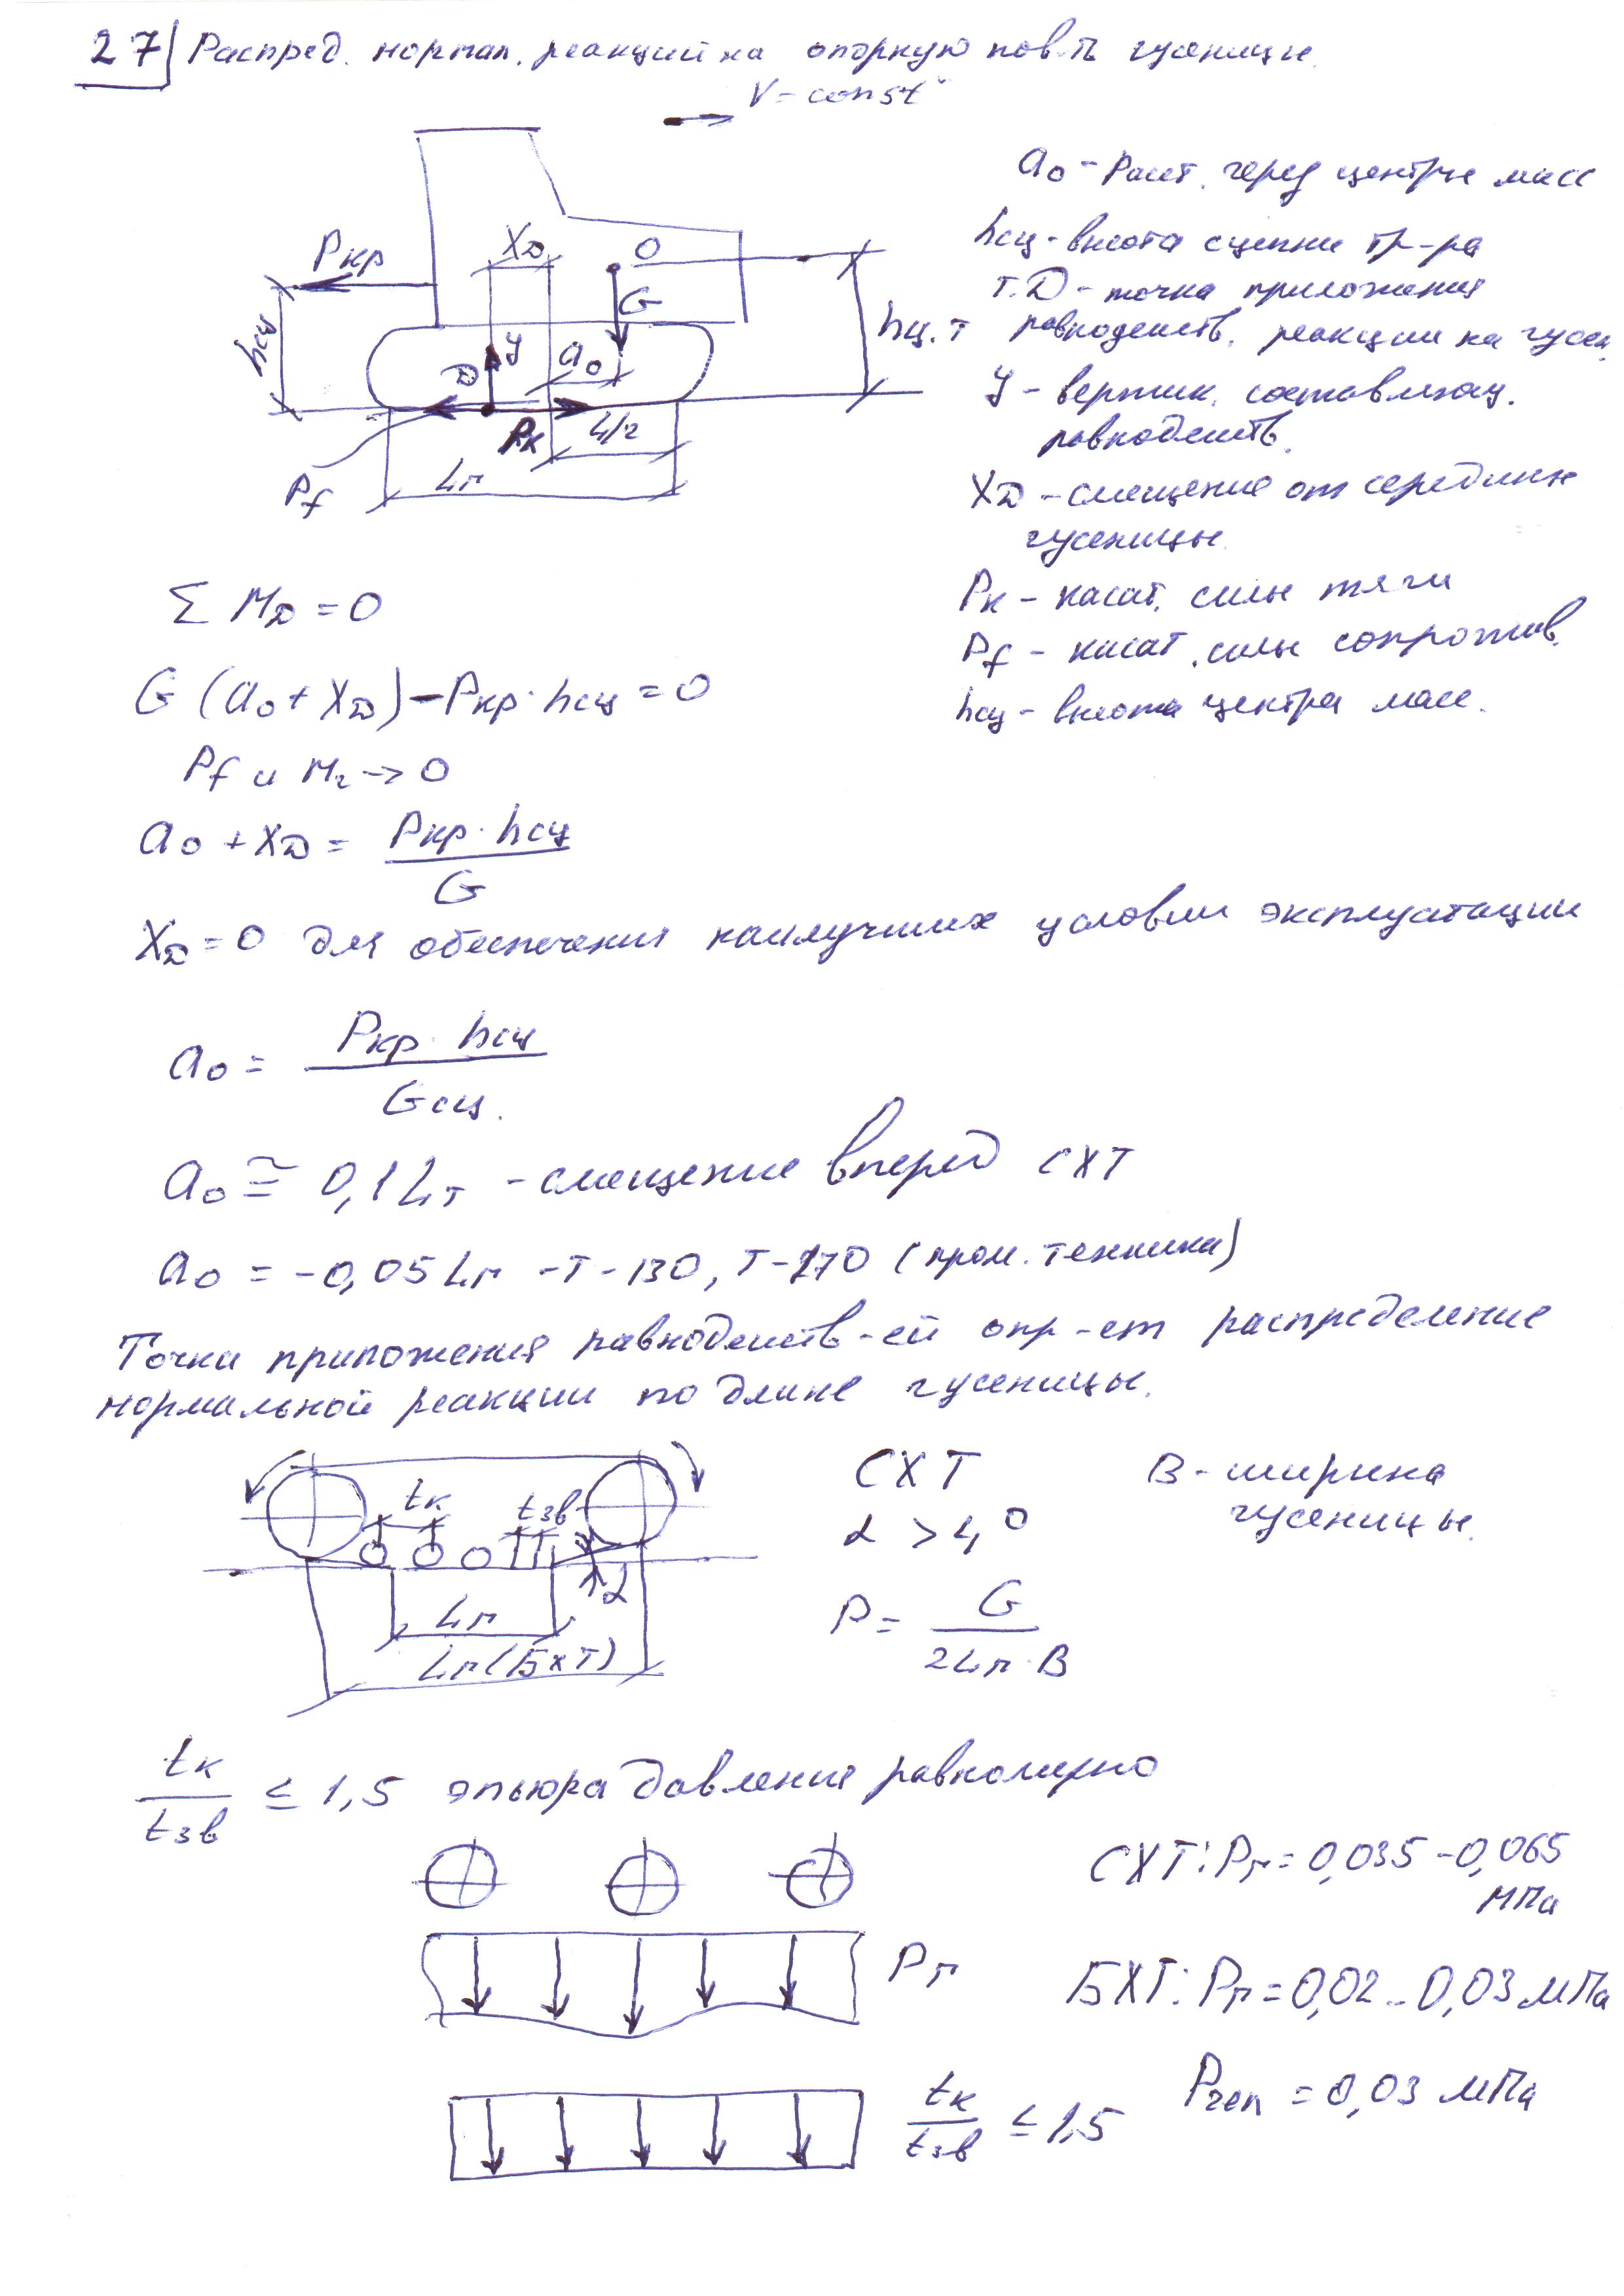 27 Распред. нормал. реакций на опорную пов-ть гусеницы.
V = const
a₀ - расст. перед центры масс
hсц - высота сцепки тр-ра
т.D - точка приложения
равнодейств. реакции на гусен.
У - вертик. составляющ.
равнодейств.
XD - смещение от середины
гусеницы.
Pк - касат. силы тяги
Pf - касат. силы сопротив.
hсц - высота центра масс.
Pкр
XD
O
G
hсц
hц.т
D
У
a₀
Pк
L/2
Lг
Pf
Σ MD = 0
G (a₀ + XD) - Pкр · hсц = 0
Pf и Mг → 0
a₀ + XD = Pкр · hсц / G
XD = 0 для обеспечения наилучших условий эксплуатации
a₀ = Pкр · hсц / Gсц.
a₀ ≅ 0,1 Lг - смещение вперед СХТ
a₀ = -0,05 Lг - Т-130, Т-170 (пром. техника)
Точка приложения равнодейств-ей опр-ет распределение
нормальной реакции по длине гусеницы.
tк
tзв
α
Lг
Lг (БХТ)
СХТ
α > 4°
P = G / 2Lг · B
B - ширина
гусеницы.
tк / tзв ≤ 1,5 эпьюра давления равномерно
Pг
СХТ: Pг = 0,035 - 0,065
МПа
БХТ: Pг = 0,02 .. 0,03 МПа
tк / tзв ≤ 1,5
Pчел = 0,03 МПа